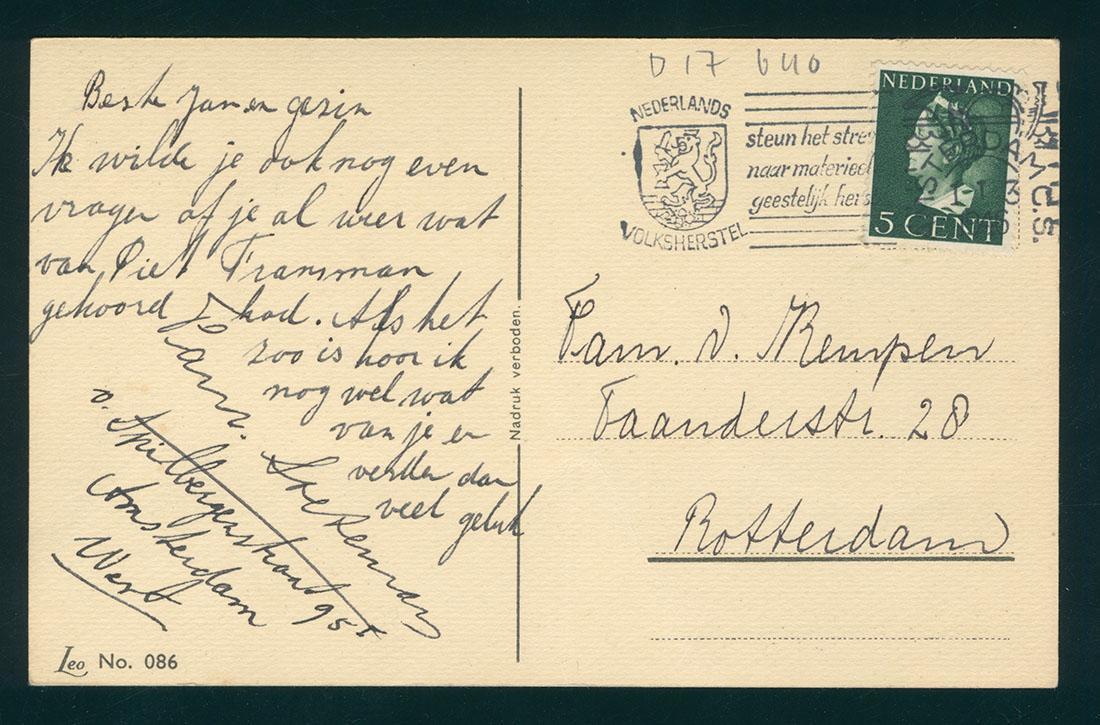 Beste Jan en gezin
Ik wilde je ook nog even
vragen of je al weer wat
van Piet Fransman
gehoord had. Als het
zoo is hoor ik
nog wel wat
van je en
verder dan
veel geluk
Fam.
v. Spilbergenstraat 95
Amsterdam
West
Leo No. 086
Nadruk verboden.
D 17 640
NEDERLANDS
VOLKSHERSTEL
steun het stre
naar materieel
geestelijk hers
NEDERLAND
5 CENT
Fam. v. Kempen
Taanderstr. 28
Rotterdam